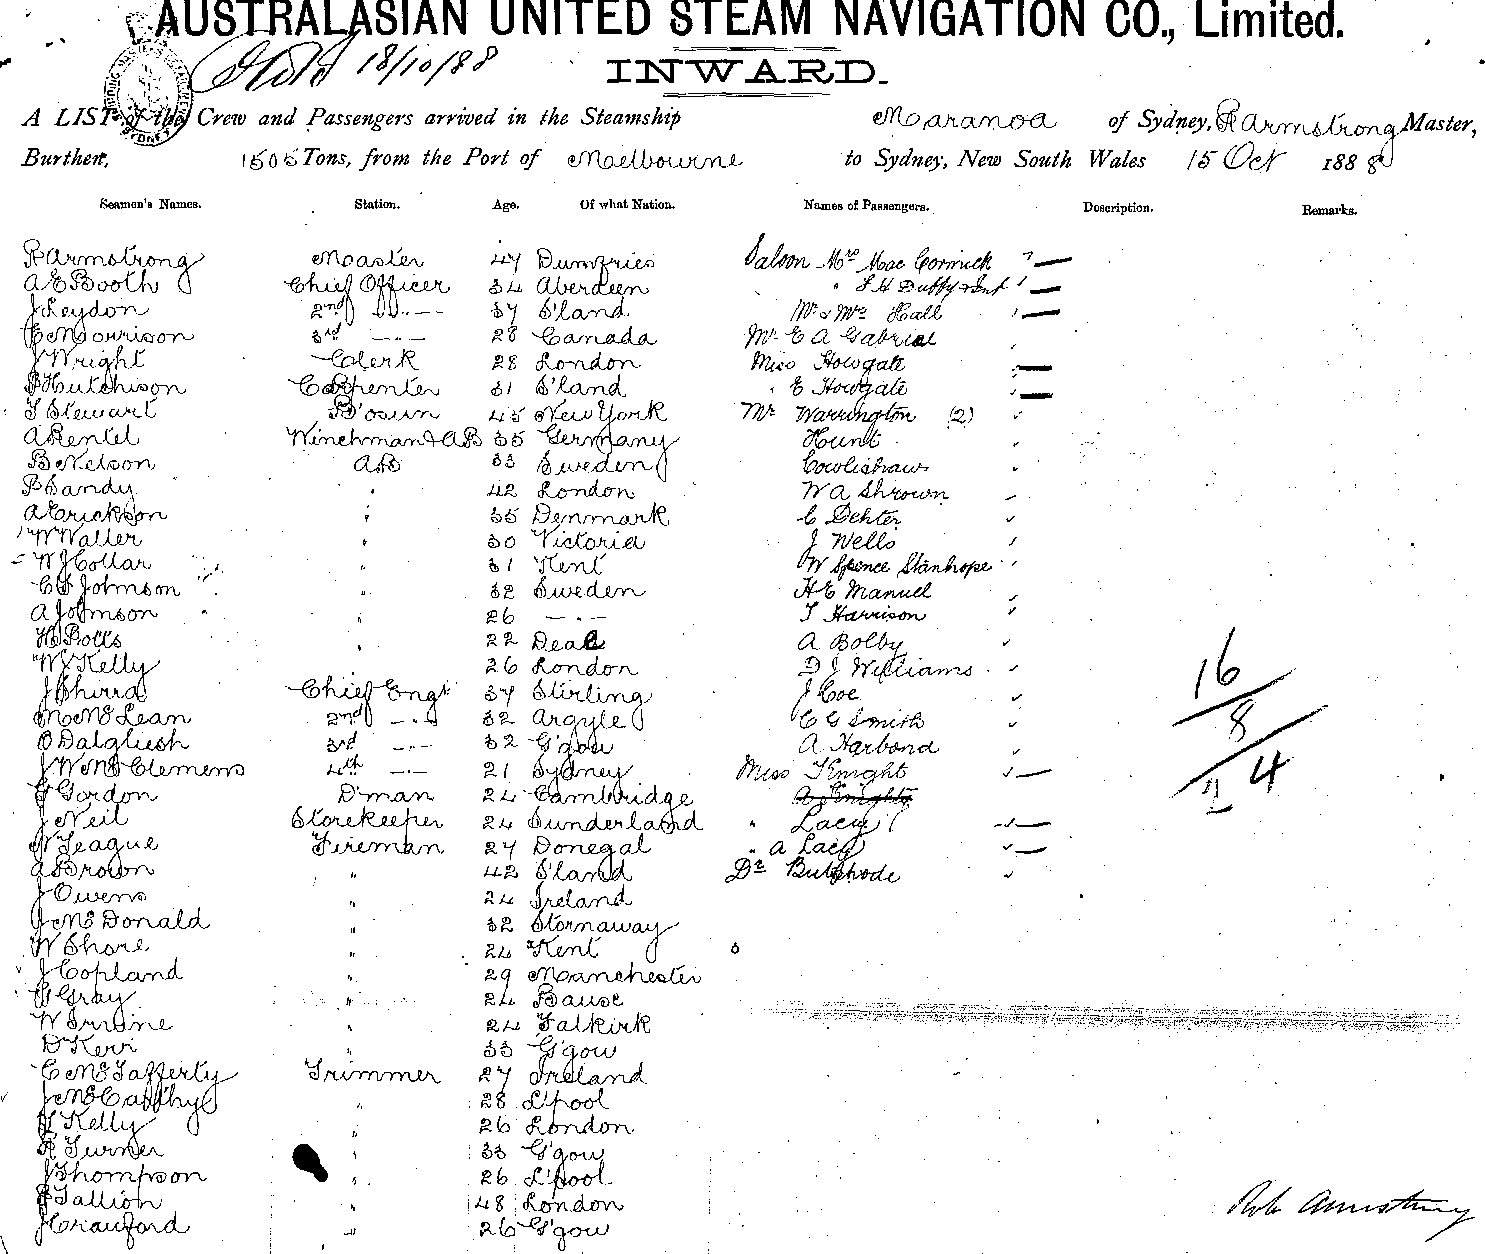 AUSTRALASIAN UNITED STEAM NAVIGATION CO., Limited.
18/10/88
INWARD.
A LIST of the Crew and Passengers arrived in the Steamship Maranoa of Sydney, R Armstrong Master,
Burthen, 1505 Tons, from the Port of Melbourne to Sydney, New South Wales 15 Oct 1888
Seamen's Names. Station. Age. Of what Nation. Names of Passengers. Description. Remarks.
R Armstrong Master 47 Dumfries Saloon Mrs Mac Cormick
A E Booth Chief Officer 34 Aberdeen " F H Duffy & Inft
J Leydon 2nd " 37 S'land Mr & Mrs Hall
C Morrison 3rd " 28 Canada Mr E A Gabriel
J Wright Clerk 28 London Miss Howgate
P Hutchison Carpenter 31 S'land " E Howgate
T Stewart B'osun 45 New York Mr Warrington (2)
A Rentel Winchman & AB 35 Germany Hunt
B Nelson AB 33 Sweden Cowlishaw
P Sandy " 42 London W A Shrown
A Erickson " 35 Denmark C Dehter
W Waller " 30 Victoria J Wells
W J Collar " 31 Kent W Spence Stanhope
C S Johnson " 32 Sweden H E Manuel
A Johnson " 26 " T Harrison
H Botts " 22 Deal A Bolby
W J Kelly " 26 London D J Williams
J Shirra Chief Engr 37 Stirling J Coe
M McLean 2nd " 32 Argyle C G Smith
O Dalgliesh 3rd " 32 G'gow A Harbond
J W McClemens 4th " 21 Sydney Miss Knight
G Gordon D'man 24 Cambridge A Knight
J Neil Storekeeper 24 Sunderland " Lacy
N Teague Fireman 27 Donegal " A Lacy
A Brown " 42 S'land Dr
J Owens " 24 Ireland
J McDonald " 32 Stornaway
W Shore " 24 Kent
J Copland " 29 Manchester
G Gray " 24 Bause
W Irvine " 24 Falkirk
D Kerr " 33 G'gow
C McTafferty Trimmer 27 Ireland
J McCarthy " 28 L'pool
J Kelly " 26 London
R Turner " 33 G'gow
J Thompson " 26 L'pool
P Tallion " 48 London
J Crauford " 26 G'gow
16
8
4
Rob Armstrong